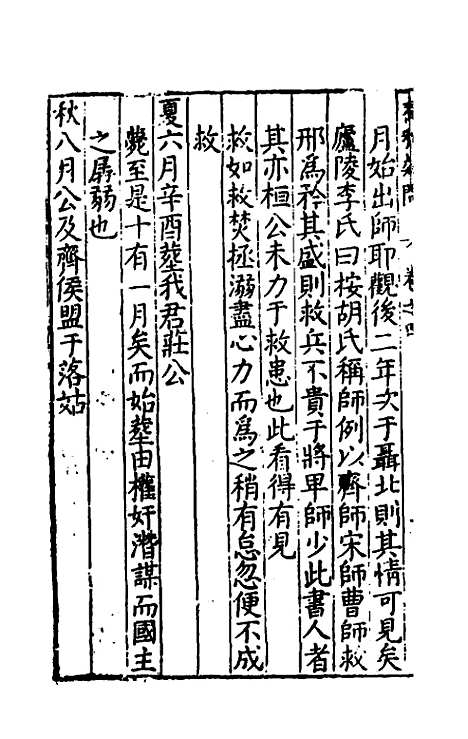 卷之四
月始出師耶觀後二年次于聶北則其情可見矣
廬陵李氏曰桉胡氏稱師例以齊師宋師曹師救
邢爲矜其盛則救兵不貴于將卑師少此書人者
其亦桓公未力于救患也此看得有見
救如救焚拯溺盡心力而爲之稍有怠忽便不成
救
夏六月辛酉塟我君莊公
薨至是十有一月矣而始塟由權奸潛謀而國主
之孱弱也
秋八月公及齊侯盟于落姑